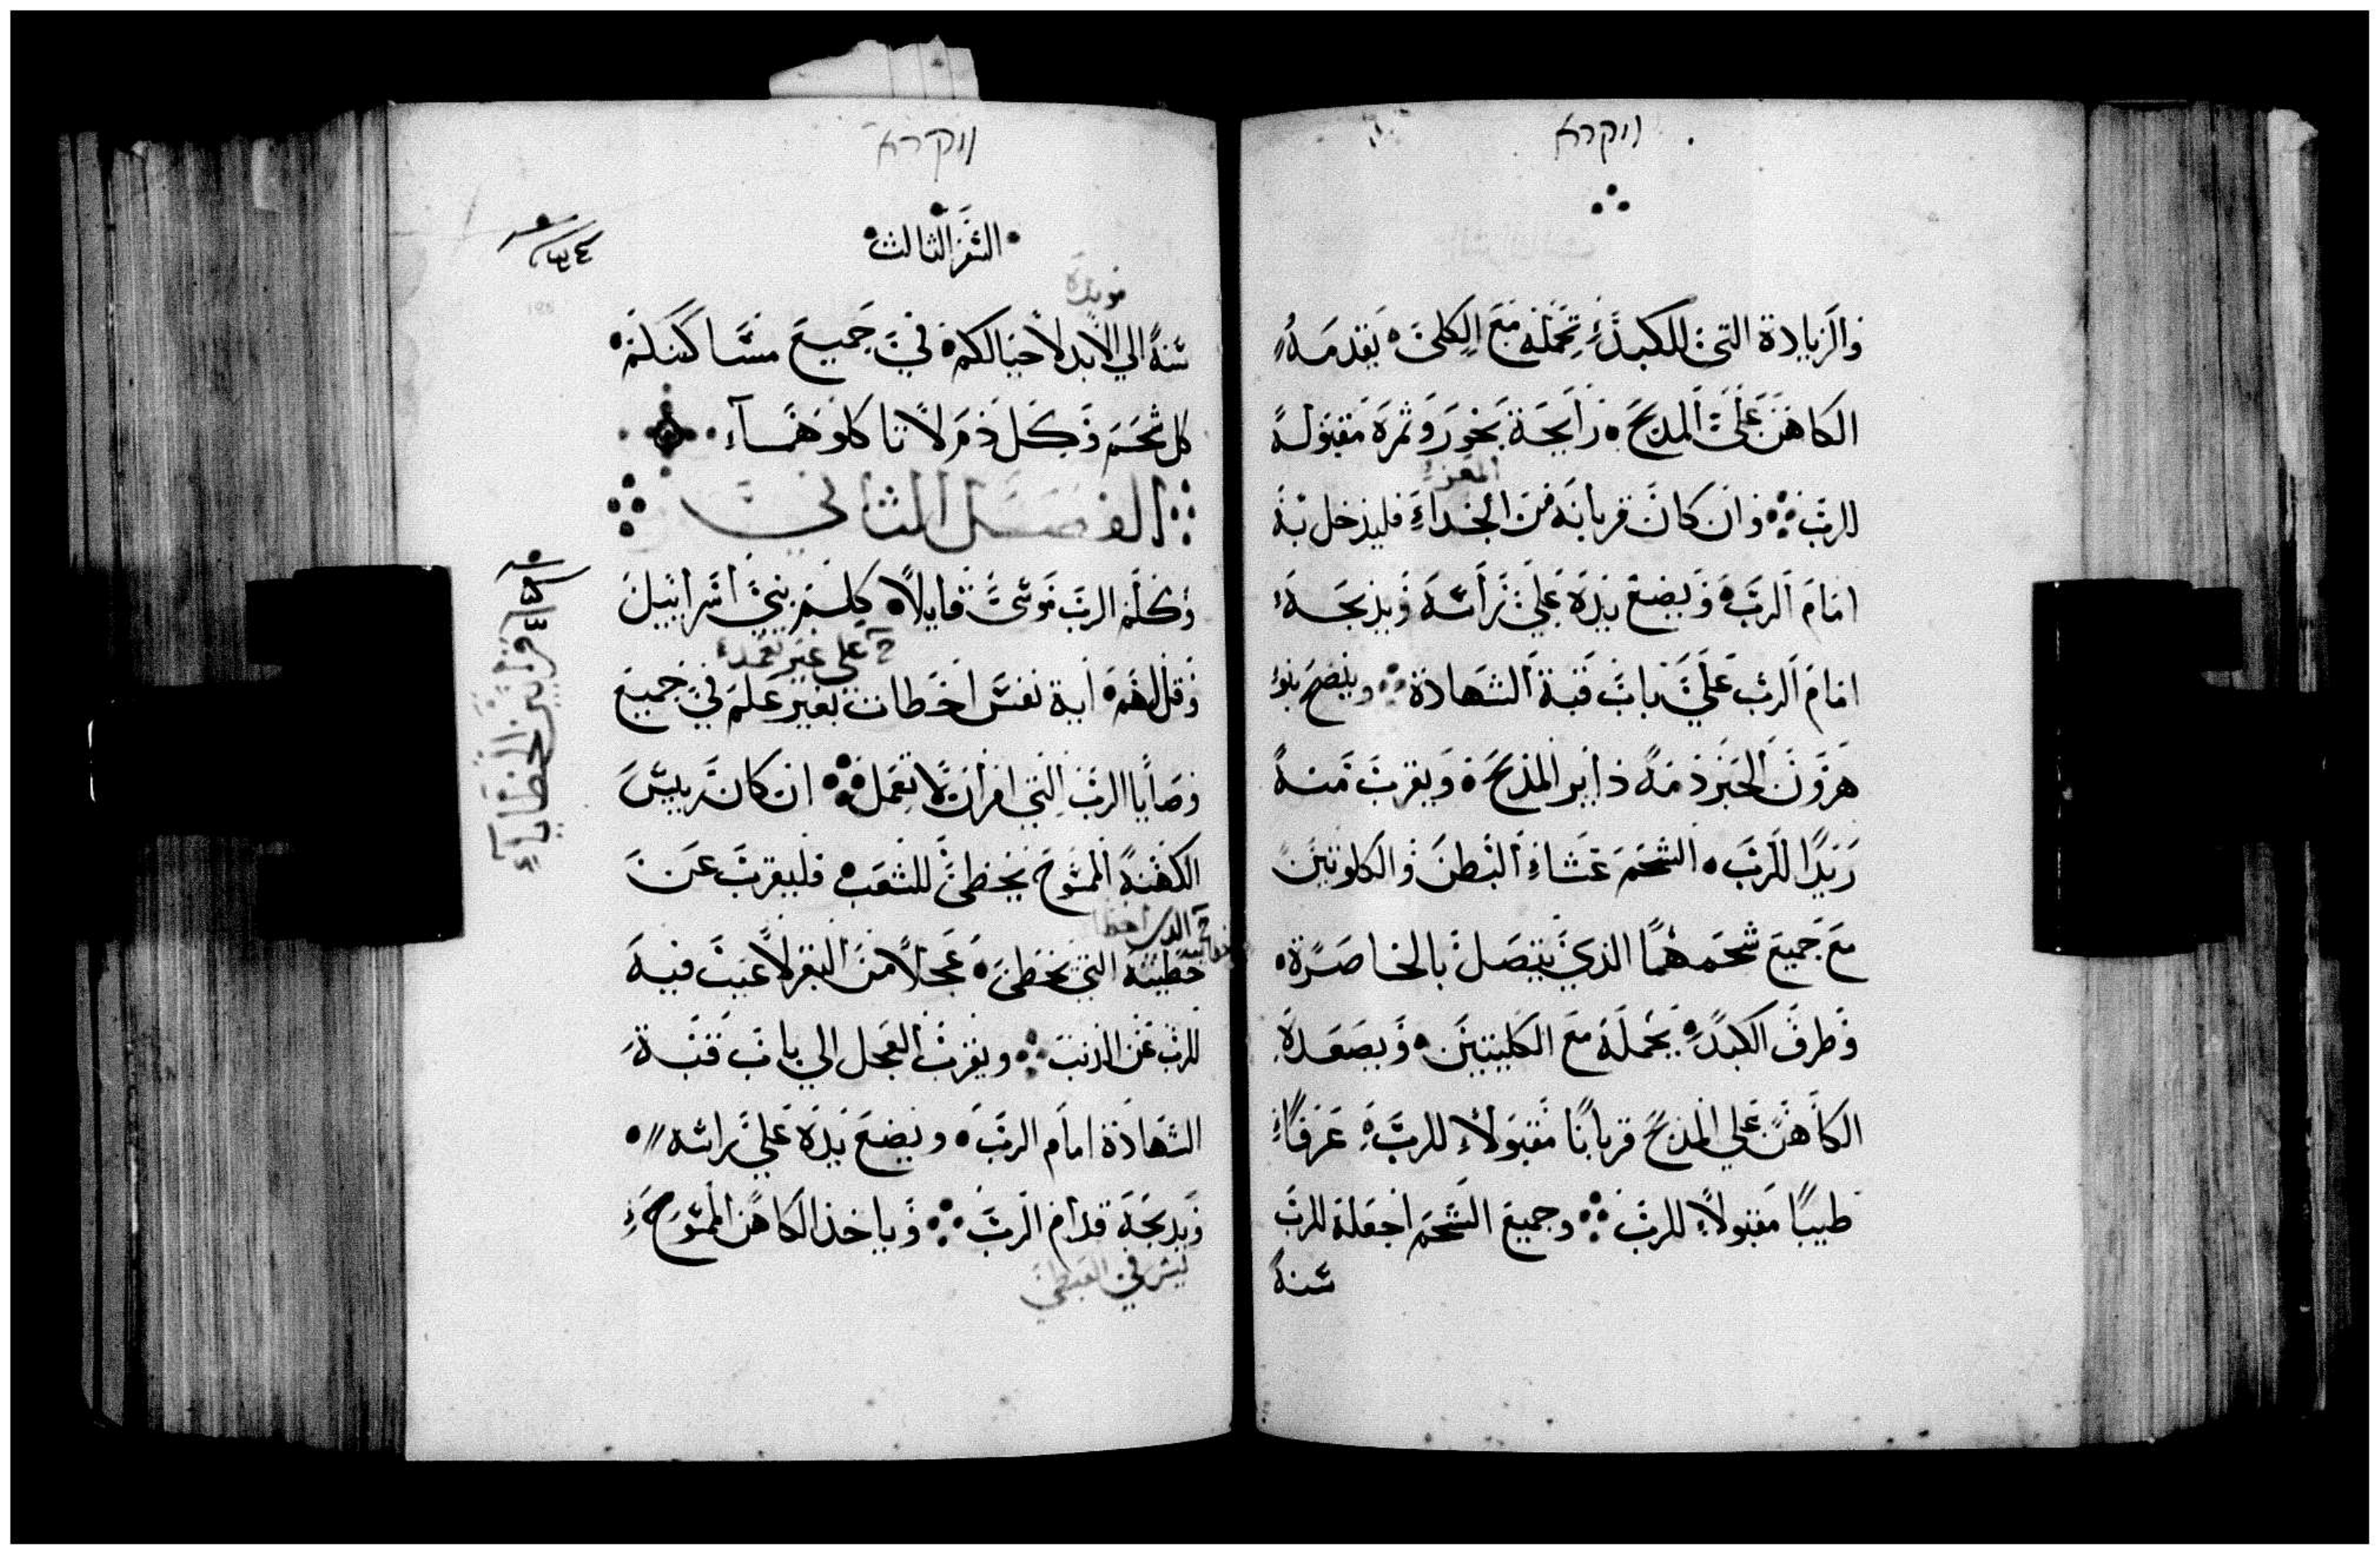 ויקרא
والزيادة التي للكبد تحمله مع الكلي يقدمه
الكاهن علي المدبح رايحة بخور وثمرة مقبولة
المعز
للرب وان كان قربانه من الجداء فليدخل به
امام الرب ويضع يده علي راسه ويدبحه
امام الرب علي باب قبة الشهادة وينضح بنو
هرون الحبر دمه داير المذبح ويقرب منه
زبدا للرب الشحم غشاء البطن والكلوتين
مع جميع شحمهما الذي يتصل بالخاصرة
وطرف الكبد يحمله مع الكليتين ويصعده
الكاهن علي المذبح قربانا مقبولا للرب عرفا
طيبا مقبولا للرب وجميع الشحم اجعله للرب
سنة
ויקרא
السفر الثالث
٣٤
موبدة
سنة الي الابد لاحيالكم في جميع مساكنكم
كل شحم وكل دم لا تاكلوهما
الفصل الثاني
وكلم الرب موسي قايلا كلم بني اسراييل
علي غير تعمد
وقل لهم اية نفس اخطات بغير علم في جميع
وصايا الرب التي امر ان لا تعمل ان كان رييس
الكهنة الممسوح يخطئ للشعب فليقرب عن
الدي اخطا
خطيته التي يخطئ عجلا من البقر لا عيب فيه
للرب عن الدنب ويقرب العجل الي باب قبة
الشهادة امام الرب ويضع يده علي راسه
ويدبحه قدام الرب وياخذ الكاهن الممسوح
ليس في القبطي
قرابين الخطايا